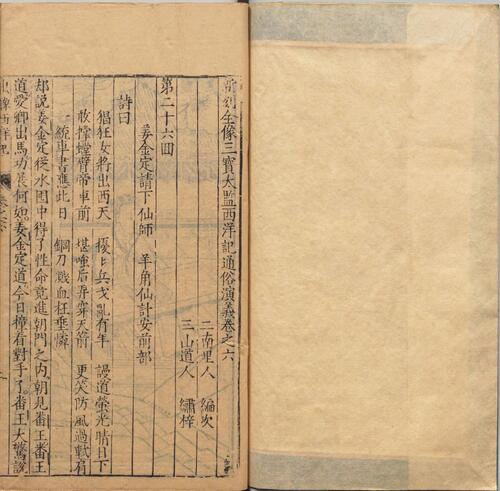 新刻全像三寶太監西洋記通俗演義卷之六
二南里人　編次
三山道人　繡梓
第二十六回
姜金定請下仙師　羊角仙計安前部
詩曰
猖狂女將出西天　擾〻兵戈亂有年　謾道螢光晴日下
敢撐螳臂帶車前　堪嗤后羿穿天箭　更笑防風過軾肩
一統車書應此日　鋼刀濺血枉垂憐
却說姜金定從水囤中得了性命竟進朝門之內朝見番王番王
道愛卿出馬功展何如姜金定道今日撞着對手了番王大驚說
西洋記　卷之六